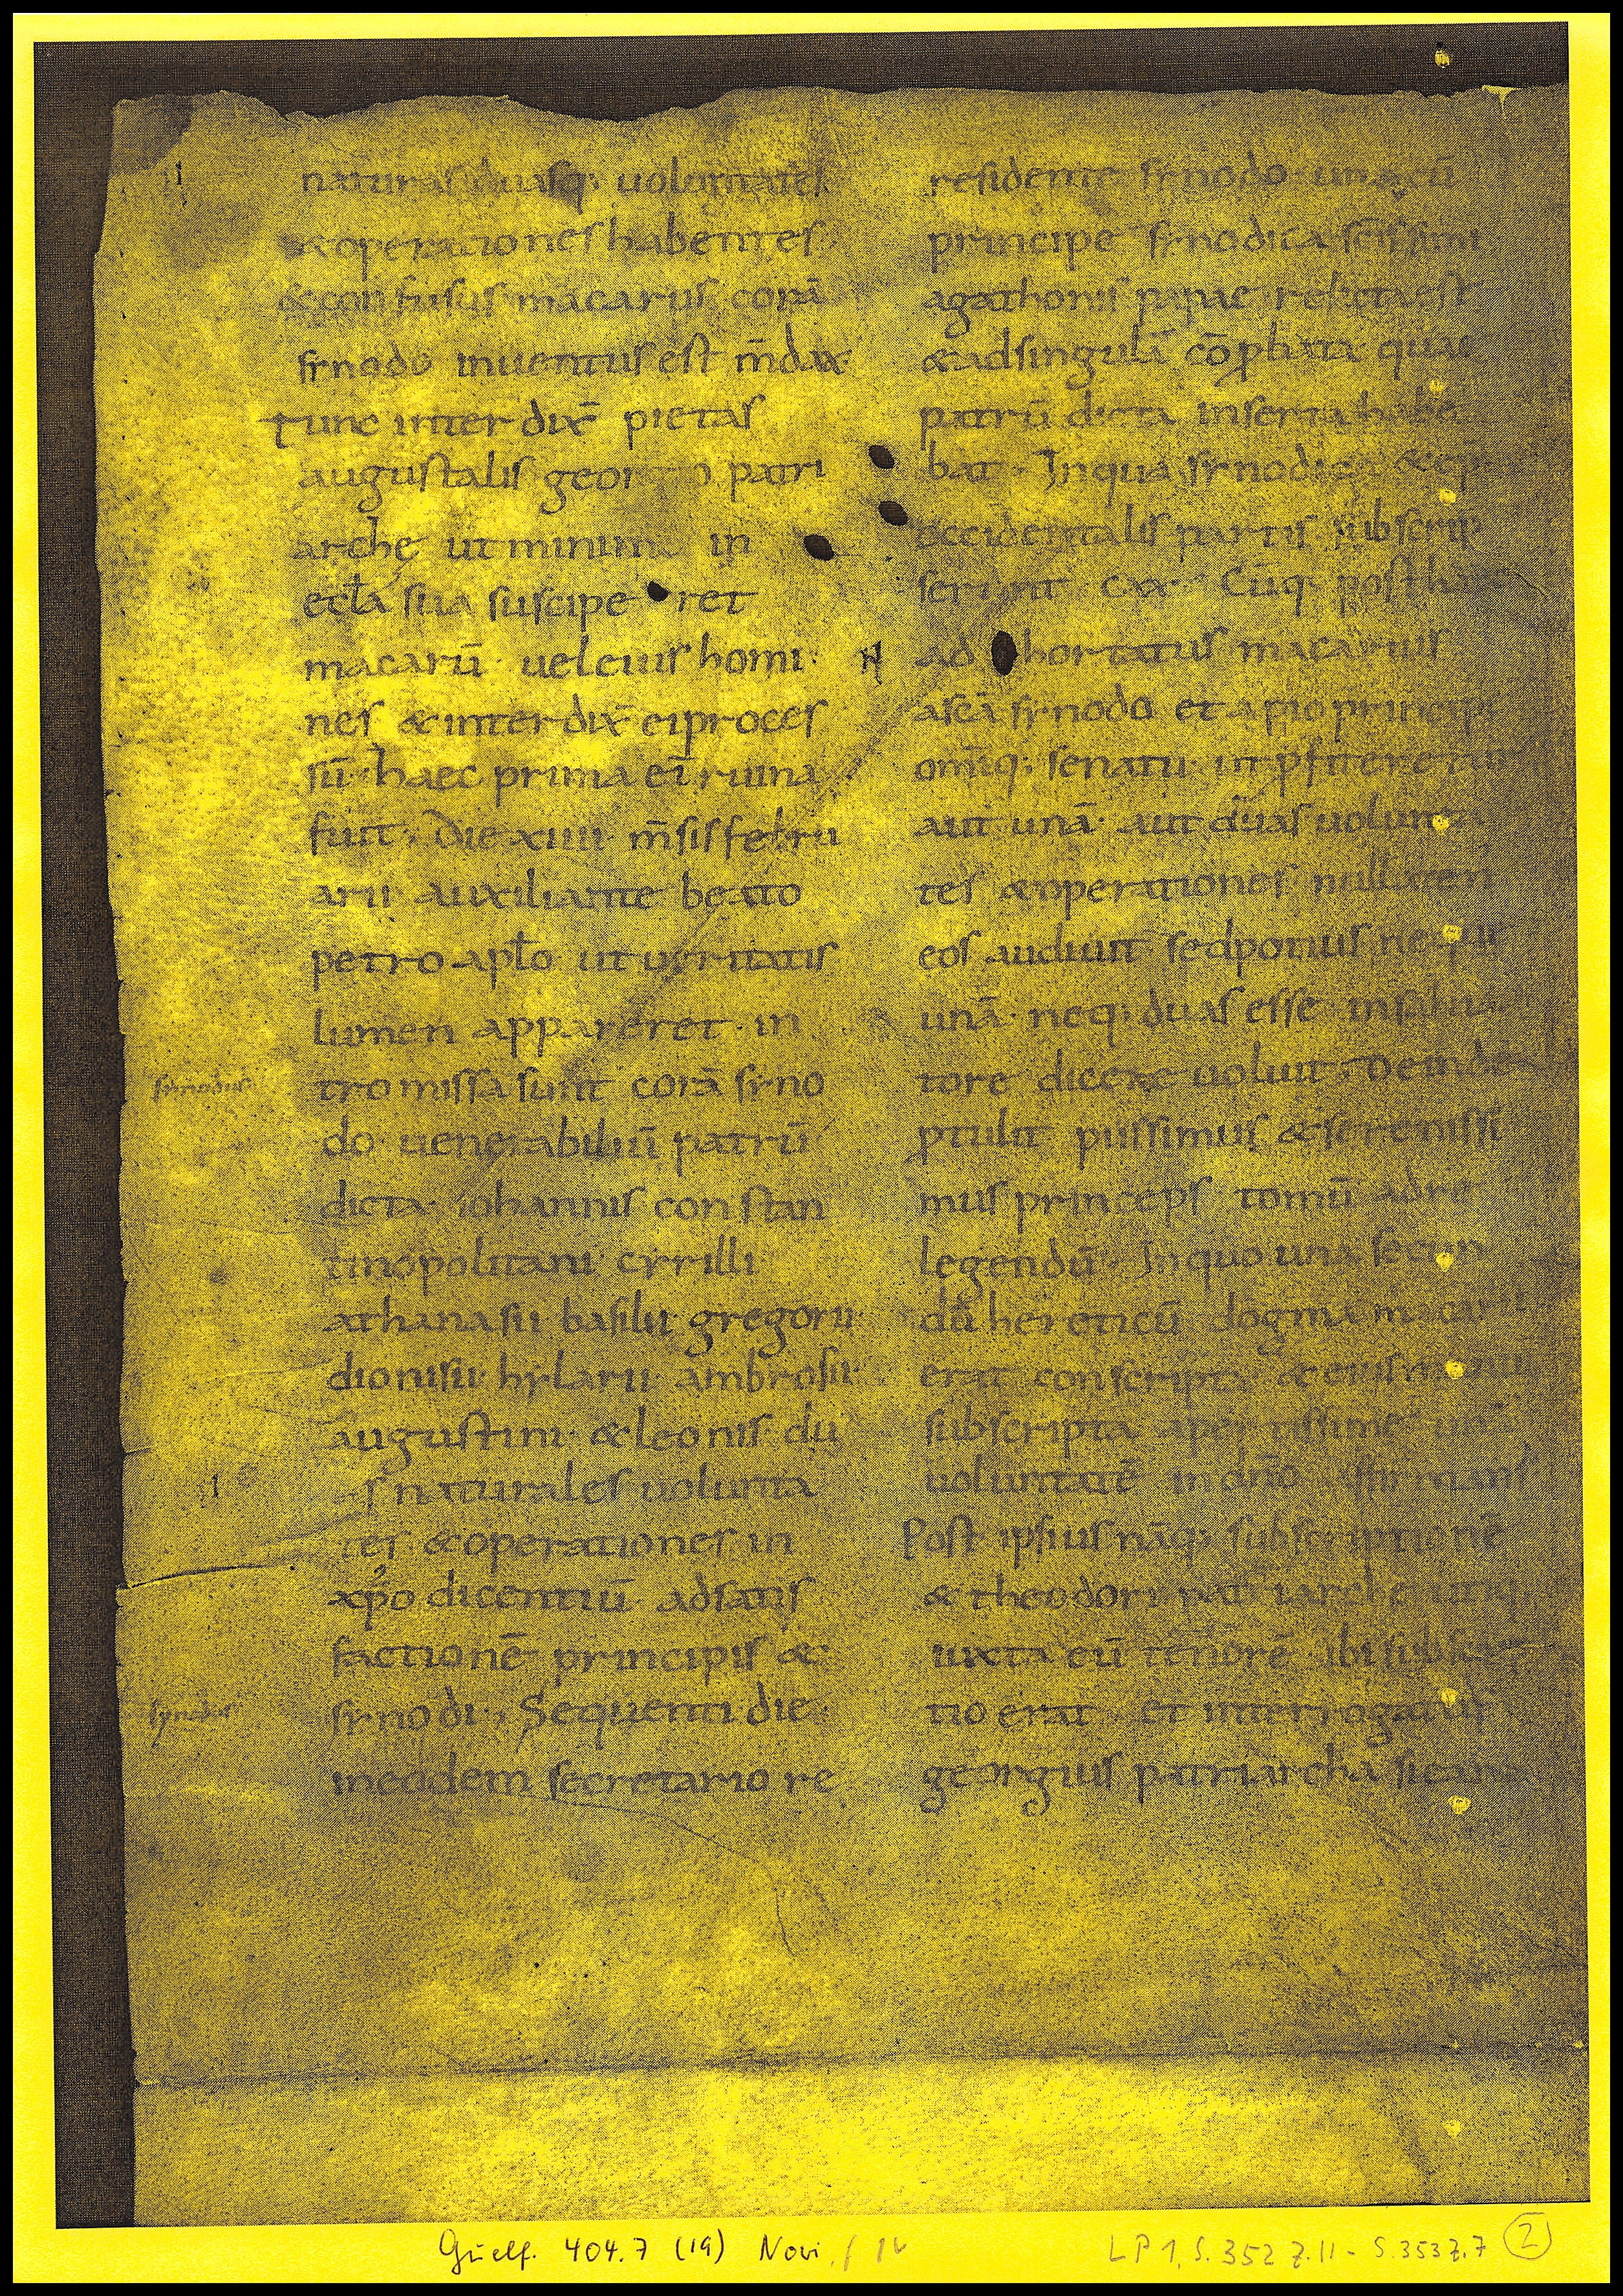 naturas duasq; uoluntates
& operationes habentes
& confusus macarius corā
synodo inuentus est m̄dax
Tunc interdix̄ pietas
augustalis geor o patri
archę ut minim in
eccła sua suscipe ret
macariū uel eius homi
nes & interdix̄ ei proces
sū. haec prima ei ruina
fuit; Die xiiii m̄sis febru
arii auxiliante beato
petro apło ut ueritatis
lumen appareret. in
synodus
tromissa sunt corā syno
do uenerabiliū patrū
dicta iohannis constan
tinopolitani cyrilli
athanasii basilii gregorii
dionisii hylarii ambrosii
augustini & leonis du
as naturales uolunta
tes & operationes in
xp̄o dicentiū ad satis
factionē principis &
synodus
synodi; Sequenti die
in eodem secretario re
residente synodo una cū
principe synodica sc̄issimi
agathonis papae relicta est
& ad singula cōphata quae
patrū dicta inserta habe
bat. In qua synodica & ep̄i
occidentalis partis subscrip
serunt cxx. Cūq; post haec
ad hortatus macarius
a sc̄a synodo et a pio principe
om̄iq; senatu ut p̄fiteretur
aut unā aut duas uolunta
tes & operationes nullaten
eos audiuit sed potius neque
unā neq; duas esse in salua
tore dicere uoluit; Deinde
ptulit piissimus & serenissi
mus princeps tomū ad re
legendū. In quo una secun
dū hereticū dogma macarii
erat conscripta & eius manu
subscripta apertissime unā
uoluntatē in dn̄o
Post ipsius nāq; subscriptionē
& theodori patriarche
iuxta eū tenorē ibi subscrip
tio erat Et interrogatus
georgius patriarcha
Guelf. 404.7 (19) Novi, f 1v
LP 1, S. 352 Z. 11 - S. 353 Z. 7 2